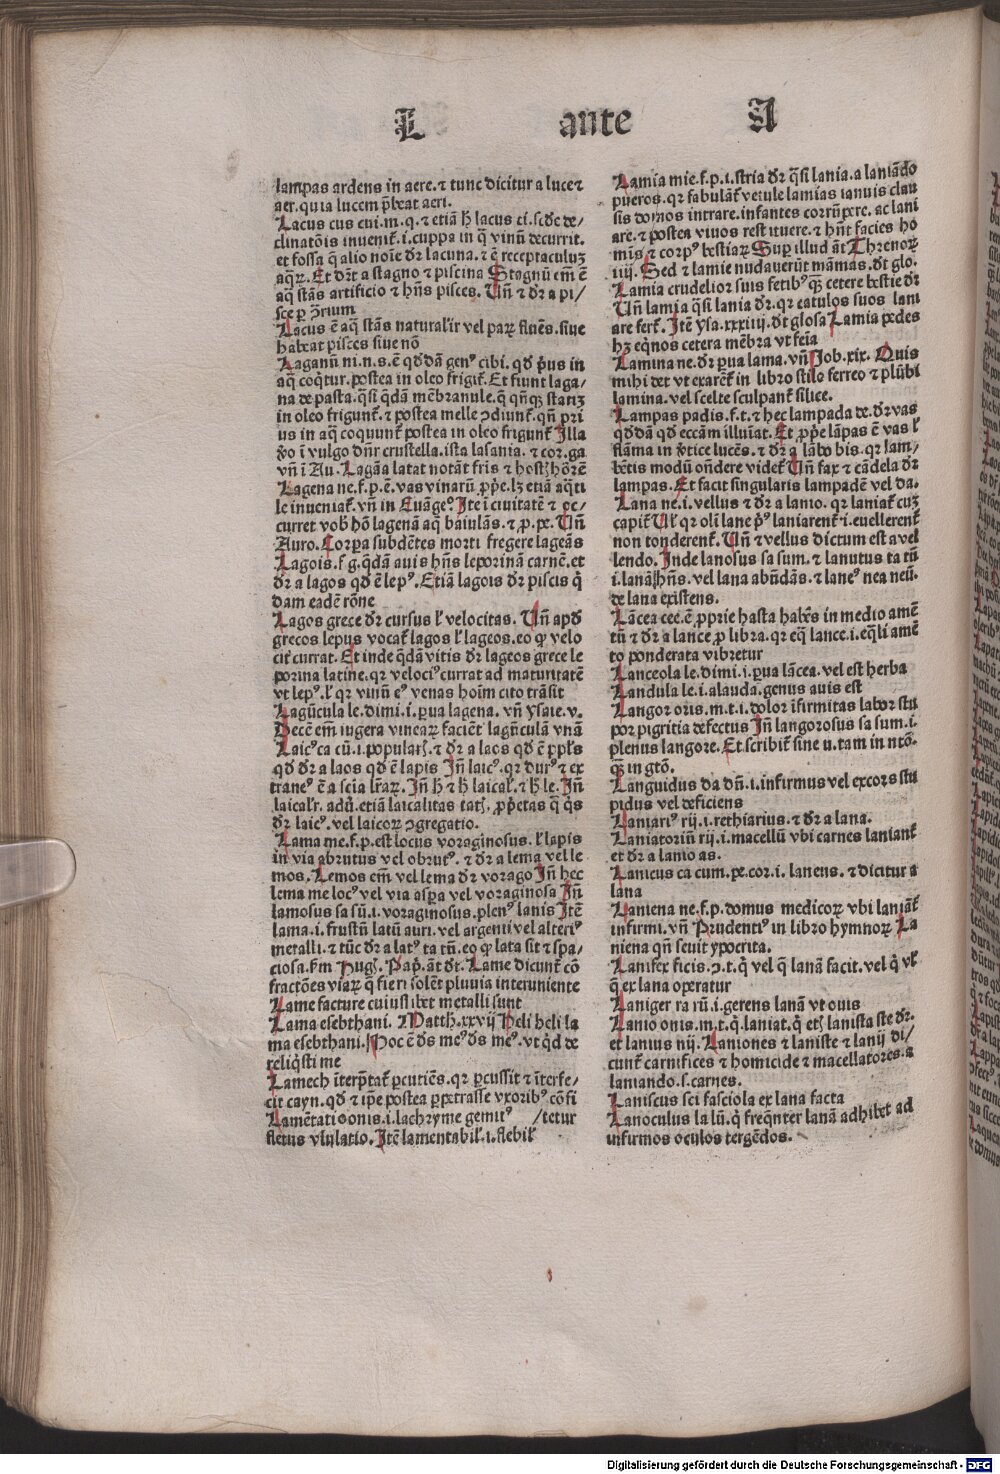 L ante A
lampas ardens in aere. ⁊ tunc dicitur a lucet
aer. quia lucem p̄beat aeri.
Lacus cus cui. m. q. ⁊ etiā hͨ lacus ci. scd̄e de/
clinatōis inuenit̄. i. cuppa in q̄ vinū decurrit.
et fossa q̄ alio noīe dr̄ lacuna. ⁊ ē receptaculuꝫ
aq̄ꝝ. Et dr̄t a stagno ⁊ piscina Stagnū em̄ ē
aq̄ stās artificio ⁊ hn̄s pisces. Vn̄ ⁊ dr̄ a pi/
sce ꝑ ↄ̄rium
Lacus ē aq̄ stās natural'ir vel paꝝ fluēs. siue
habeat pisces siue nō
Laganū ni. n. s. ē qd̄dā genꝰ cibi. qd̓ p̓us in
aq̄ coq̄tur. postea in oleo frigit̄. Et fiunt laga/
na de pasta. q̄si q̄dā mēbranule. q̄ qn̄qꝫ statiꝫ
in oleo frigunt̄. ⁊ postea melle ↄdiunt̄. qn̄ pri
us in aq̄ coquunt̄ postea in oleo frigunt̄ Illa
ꝟo ī vulgo dn̄r crustella. ista lasania. ⁊ cor. ga
vn̄ ī Au. Lagāa latat notāt fris ⁊ hostꝭ hōrē
Lagena ne. f. p. ē. vas vinariū ꝓp̓e. lꝫ etiā aq̄ti
le inueniat̄. vn̄ in Euāgeꝰ. Ite ī ciuitatē ⁊ oc/
curret vob̄ hō lagenā aq̄ baiulās. ⁊ ꝓ. pe. Vn̄
Auro. Corpa subdētes morti fregere lageās
Lagois. f g. q̄dā auis hn̄s leporinā carnē. et
dr̄ a lagos qd̓ ē lepꝰ. Etiā lagois dr̄ piscis q̓
dam eadē rōne
Lagos grece dr̄ cursus l' velocitas. Vn̄ apd̓
grecos lepus vocat̄ lagos l' lageos. eo ꝙ velo
cit̄ currat. Et inde q̄dā vitis dr̄ lageos grece le
porina latine. qr velociꝰ currat ad maturitatē
vt lepꝰ. l' qr vinū eꝰ venas hoīm cito trāsit
Lagūcula le. dimi. i. ꝑua lagena. vn̄ ysaie. v.
Decē em̄ iugera vineaꝝ faciēt lagūculā vnā
Laicꝰ ca cū. i. popularꝭ. ⁊ dr̄ a laos qd̓ ē ppl's
qd̓ dr̄ a laos qd̓ ē lapis Jn̄ laicꝰ. qr durꝰ ⁊ ex
traneꝰ ē a scia l'raꝝ. Jn̄ hͨ ⁊ hͨ laical'. ⁊ hͨ le. Jn̄
laical'r. adū. etiā laicalitas tatꝭ. ꝓp̓etas q̄ q̓s
dr̄ laicꝰ. vel laicoꝝ ↄgregatio.
Lama me. f. p. est locus voraginosus. l' lapis
in via abrutus vel obrutꝰ. ⁊ dr̄ a lema vel le
mos. Lemos em̄ vel lema dr̄ vorago Jn̄ hec
lema me locꝰ vel via aspa vel voraginosa Jn̄
lamosus sa sū. i. voraginosus. plenꝰ lanis Jtē
lama. i. frustū latū auri. vel argenti vel alteriꝰ
metalli. ⁊ tūc dr̄ a latꝰ ta tū. eo ꝙ lata sit ⁊ spa/
ciosa. fm Hugꝭ. Pap̓. āt dt̄. Lame dicunt̄ cō
fractōes viaꝝ q̄ fieri solēt pluuia interuniente
Lame facture cuiuslibet metalli sunt
Lama esebthani. Matth. xxvij Heli heli la
ma esebthani. Hoc ē dꝰs meꝰ dꝰs meꝰ. vt qd̓ de
reliq̓sti me
Lamech īterp̄tat̄ ꝑcutiēs. qr ꝑcussit ⁊ īterfe/
cit cayn. qd̓ ⁊ ip̄e postea ꝑpetrasse vxoribꝰ cōfi
Lamētatisonis. i. lachryme gemitꝰ /tetur
fletus vlulatio. Jtē lamentabil'. i. flebil'
Lamia mie. f. p. i. stria dr̄ q̄si lania. a laniādo
pueros. qr fabulāt̄ vetule lamias ianuis clau
sis domos intrare. infantes corrūpere. ac lani
are. ⁊ postea viuos restituere. ⁊ hn̄t facies ho
mīs ⁊ corpꝰ bestiaꝝ Sup illud āt Threnoꝝ
iiij. Sed ⁊ lamie nudauerūt māmas. dt̄ glo.
Lamia crudelior suis fetibꝰ q̄ꝫ cetere bestie dr̄
Vn̄ lamia q̄si lania dr̄. qr catulos suos lani
are fert̄. Jtē ysa. xxxiiij. dt̄ glosa Lamia pedes
hꝫ eq̓nos cetera mēbra vt feīa
Lamina ne. dr̄ ꝑua lama. vn̄ Job. xix. Quis
mihi det vt exarēt̄ in libro stilo ferreo ⁊ plūbi
lamina. vel scelte sculpant̄ silice.
Lampas padis. f. t. ⁊ hec lampada de. dr̄ vas
qd̄dā qd̓ eccām illuīat. Et ꝓp̓e lāpas ē vas l'
flāma in ꝟtice lucēs. ⁊ dr̄ a lābo bis. qr lam/
bētis modū on̄dere videt̄ Vn̄ fax ⁊ cādela dr̄
lampas. Et facit singularis lampadē vel da.
Lana ne. i. vellus ⁊ dr̄ a lanio. qr laniat̄ cuꝫ
capit̄ Ul' qr olī lane p̓ꝰ laniarent̄. i. euellerent̄
non tonderent̄. Vn̄ ⁊ vellus dictum est a vel
lendo. Jnde lanosus sa sum. ⁊ lanutus ta tū
i. lanā hn̄s. vel lana abūdās. ⁊ laneꝰ nea neū.
de lana existens.
Lācea cee. ē ꝓprie hasta habēs in medio amē
tū ⁊ dr̄ a lance ꝓ libra. qr eq̄ lance. i. eq̄li amē
to ponderata vibretur
Lanceola le. dimi. i. ꝑua lācea. vel est herba
Landula le. i. alauda. genus auis est
Langor oris. m. t. i. dolor īfirmitas labor stu
por pigritia defectus Jn̄ langorosus sa sum. i.
plenus langore. Et scribit̄ sine u. tam in nt̄ō.
q̄ꝫ in gt̄ō.
Languidus da dū. i. infirmus vel excors stu
pidus vel deficiens
Laniariꝰ rij. i. rethiarius. ⁊ dr̄ a lana.
Laniatoriū rij. i. macellū vbi carnes laniant̄
et dr̄ a lanio as.
Lanicus ca cum. pe. cor. i. laneus. ⁊ dicitur a
lana
Laniena ne. f. p. domus medicoꝝ vbi laniāt̄
infirmi. vn̄ Prudentiꝰ in libro hymnoꝝ La
niena qn̄ seuit ypocrita.
Lanifex ficis. ↄ. t. q̓ vel q̄ lanā facit. vel q̓ vl'
q̄ ex lana operatur
Laniger ra rū. i. gerens lanā vt ouis
Lanio onis. m. t. q̓. laniat. q̓ etꝭ lanista ste dr̄.
et lanius nij. Laniones ⁊ laniste ⁊ lanij di/
cunt̄ carnifices ⁊ homicide ⁊ macellatores. a
laniando. s. carnes.
Laniscus sci fasciola ex lana facta
Lanoculus la lū. q̓ freq̄nter lanā adhibet ad
infirmos oculos tergēdos.
Digitalisierung gefördert durch die Deutsche Forschungsgemeinschaft - DFG